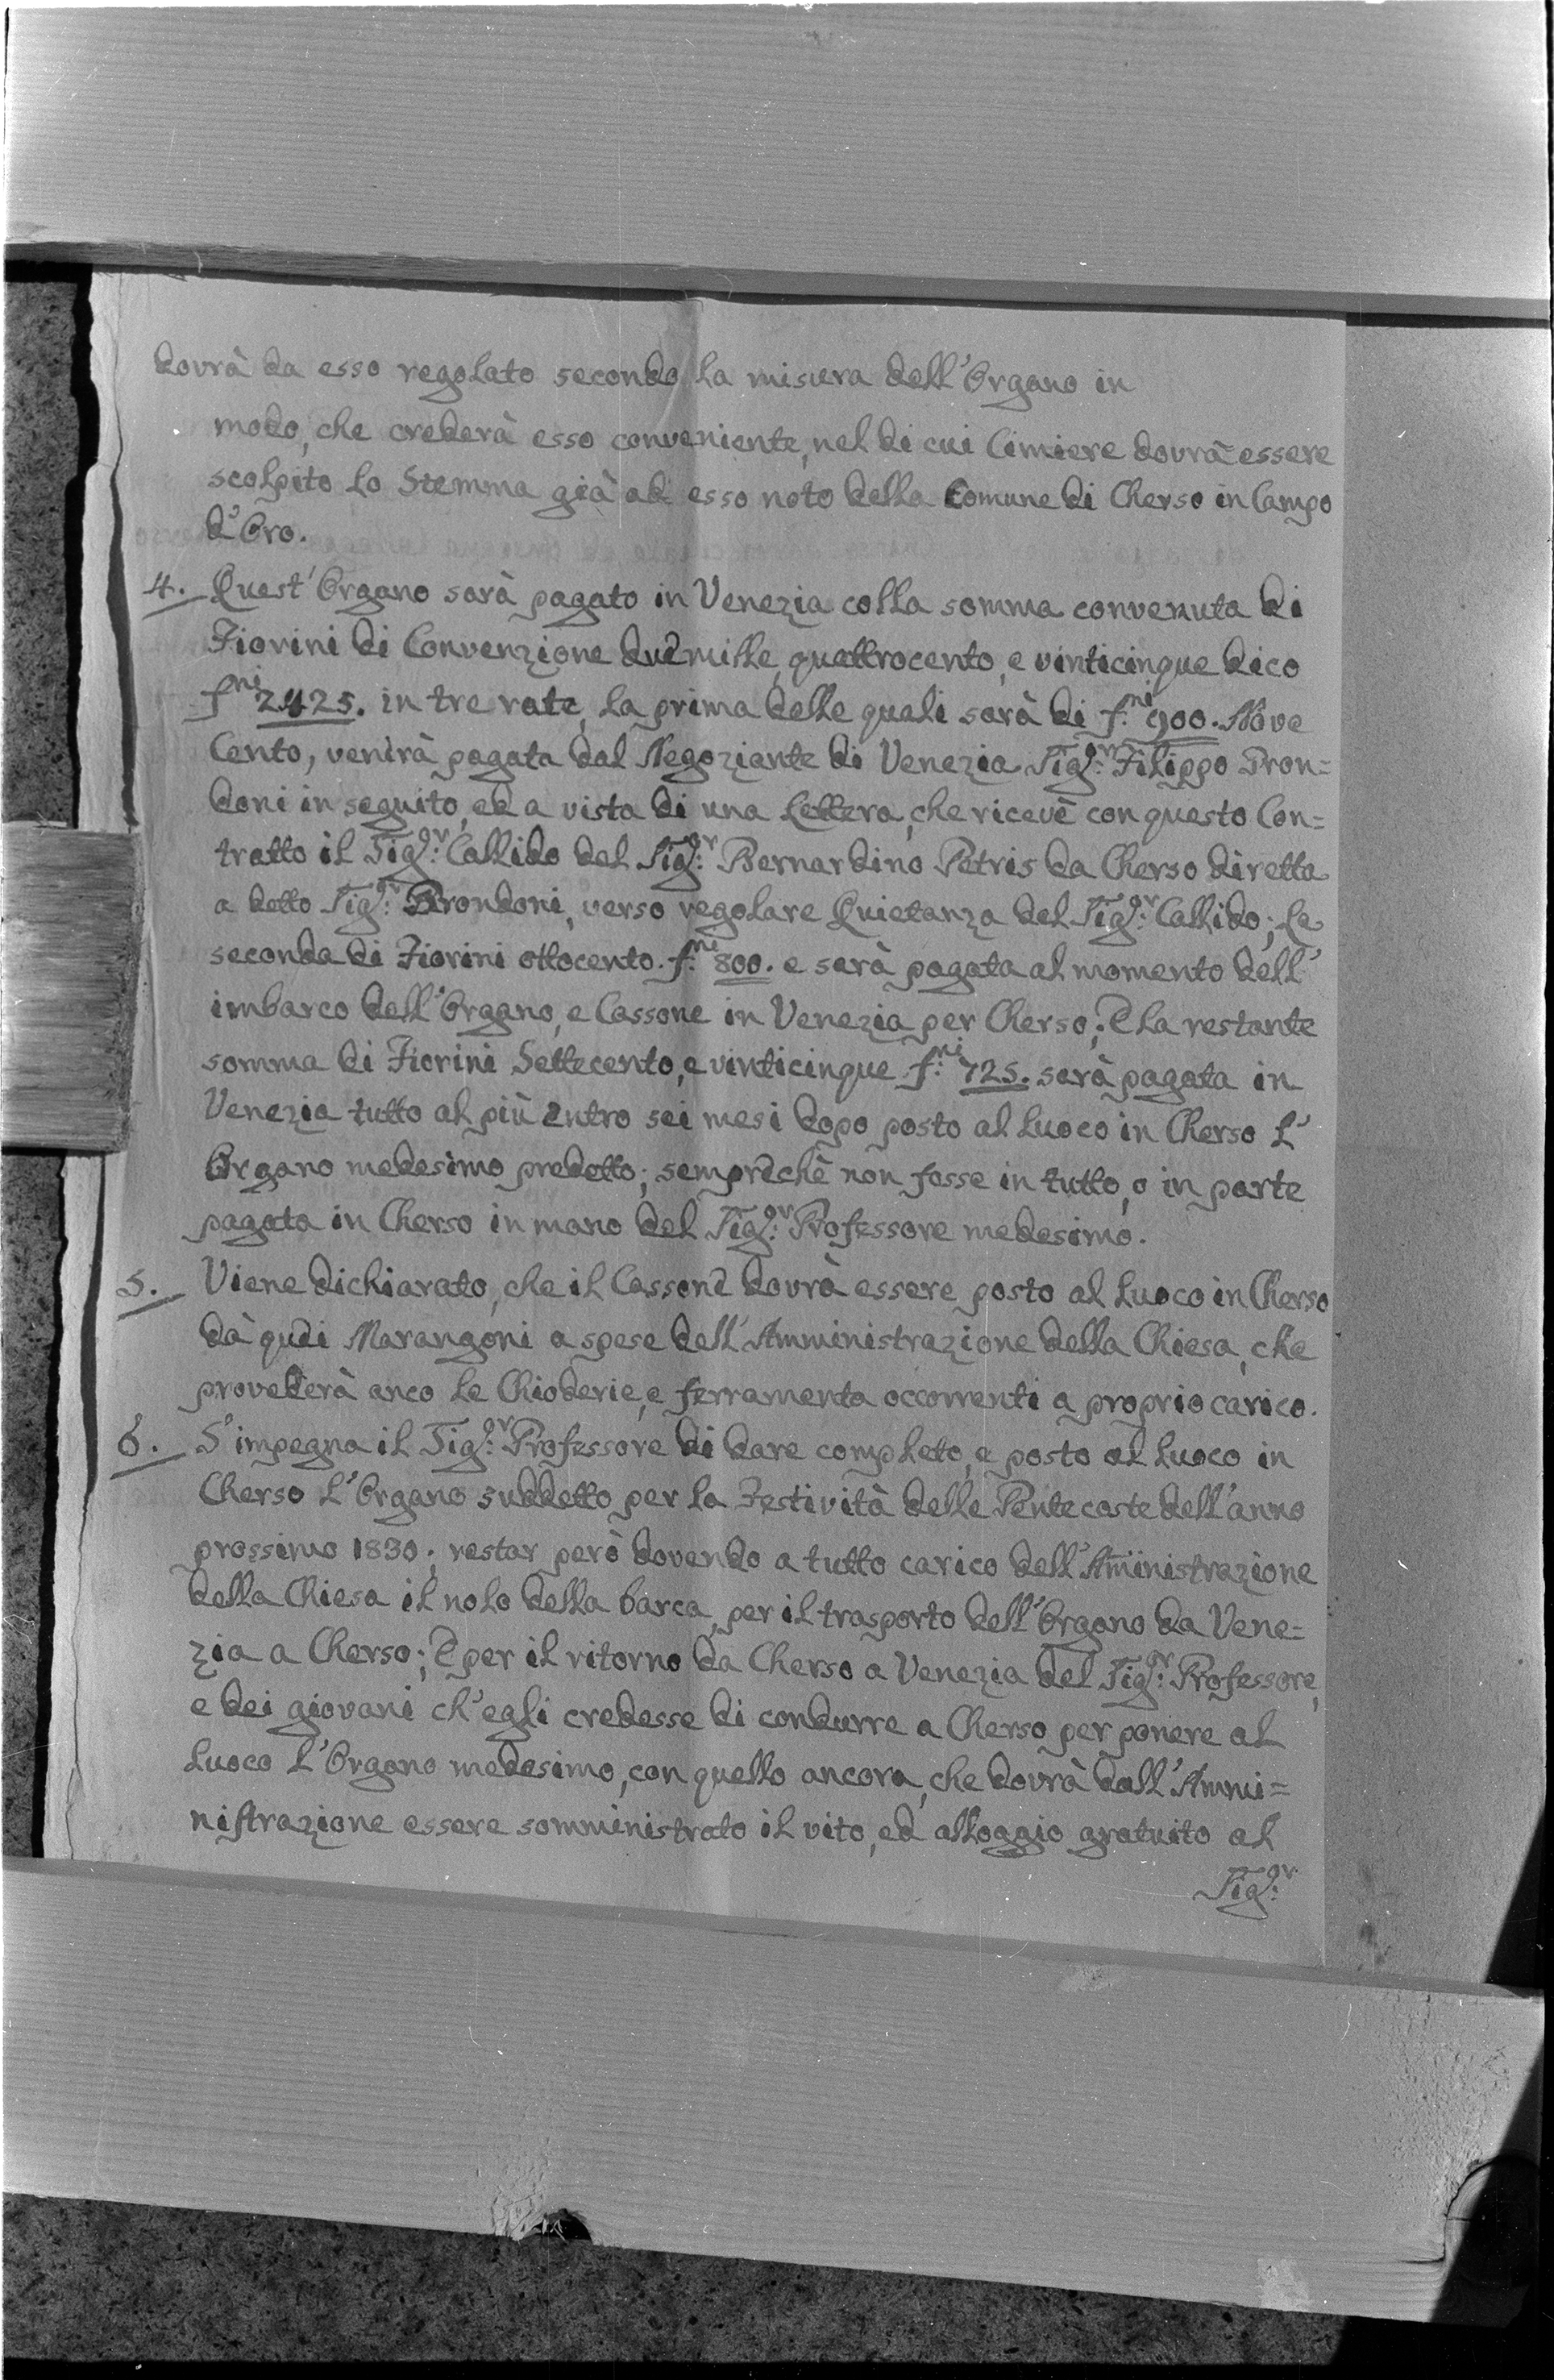 dovrà da esso regolato secondo la misura dell'Organo in
modo, che crederà esso conveniente, nel di cui Cimiere dovrà essere
scolpito lo Stemma già ad esso noto della Comune di Cherso in Campo
d'Oro.
4. Quest'Organo sarà pagato in Venezia colla somma convenuta di
Fiorini di Convenzione duemille, quattrocento, e vinticinque dico
f.ni 2425. in tre rate, la prima delle quali sarà di f.ni 900. Nove
Cento, venirà pagata dal Negoziante di Venezia Sig.r Filippo Bron=
doni in seguito, ed a vista di una Lettera, che riceve con questo Con=
tratto il Sig.r Callido del Sig.r Bernardino Petris da Cherso diretta
a detto Sig.r Brondoni, verso regolare Quietanza del Sig.r Callido; la
seconda di Fiorini ottocento. f.ni 800. e sarà pagata al momento dell'
imbarco dell'Organo, e Cassone in Venezia per Cherso; E la restante
somma di Fiorini Settecento, e vinticinque f.ni 725. sarà pagata in
Venezia tutto al più entro sei mesi dopo posto al Luoco in Cherso l'
Organo medesimo predetto; sempreche non fosse in tutto, o in parte
pagata in Cherso in mano del Sig.r Professore medesimo.
5. Viene dichiarato, che il Cassone dovrà essere posto al Luoco in Cherso
da quei Marangoni a spese dell'Amministrazione della Chiesa, che
provederà anco le Chioderie, e ferramenta occorrenti a proprio carico.
6. S'impegna il Sig.r Professore di dare completo, e posto al Luoco in
Cherso l'Organo suddetto per la Festività delle Pentecoste dell'anno
prossimo 1830; restar però dovendo a tutto carico dell'Aministrazione
della Chiesa il nolo della barca, per il trasporto dell'Organo da Vene=
zia a Cherso; E per il ritorno da Cherso a Venezia del Sig.r Professore,
e dei giovani ch'egli credesse di condurre a Cherso per ponere al
Luoco l'Organo medesimo, con quello ancora, che dovrà dall'Ammi=
nistrazione essere somministrato il vito, ed alloggio gratuito al
Sig.r